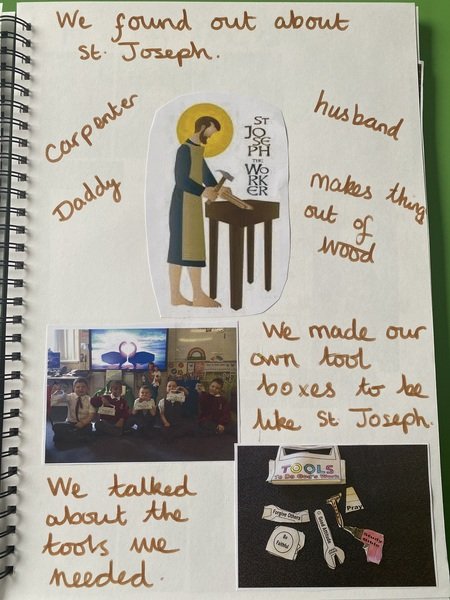 We found out about
St. Joseph.
Carpenter
Daddy
ST
JO
SE
PH
THE
WO
RK
ER
husband
makes thing
out of
wood
We made our
own tool
boxes to be
like St Joseph.
We talked
about the
tools we
needed.
TOOLS
To Do God's Work
Forgive Others
Be
Faithful
Good Attitude
Pray
Study
Bible